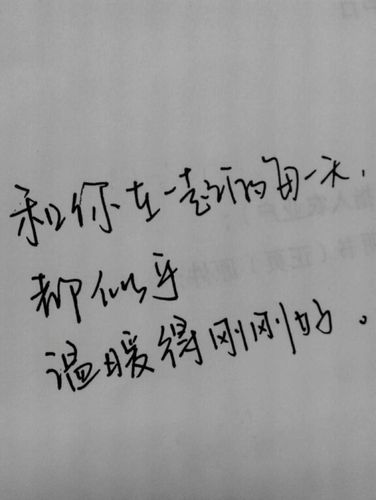 和你在一起的每一天，
都似乎
温暖得刚刚好。